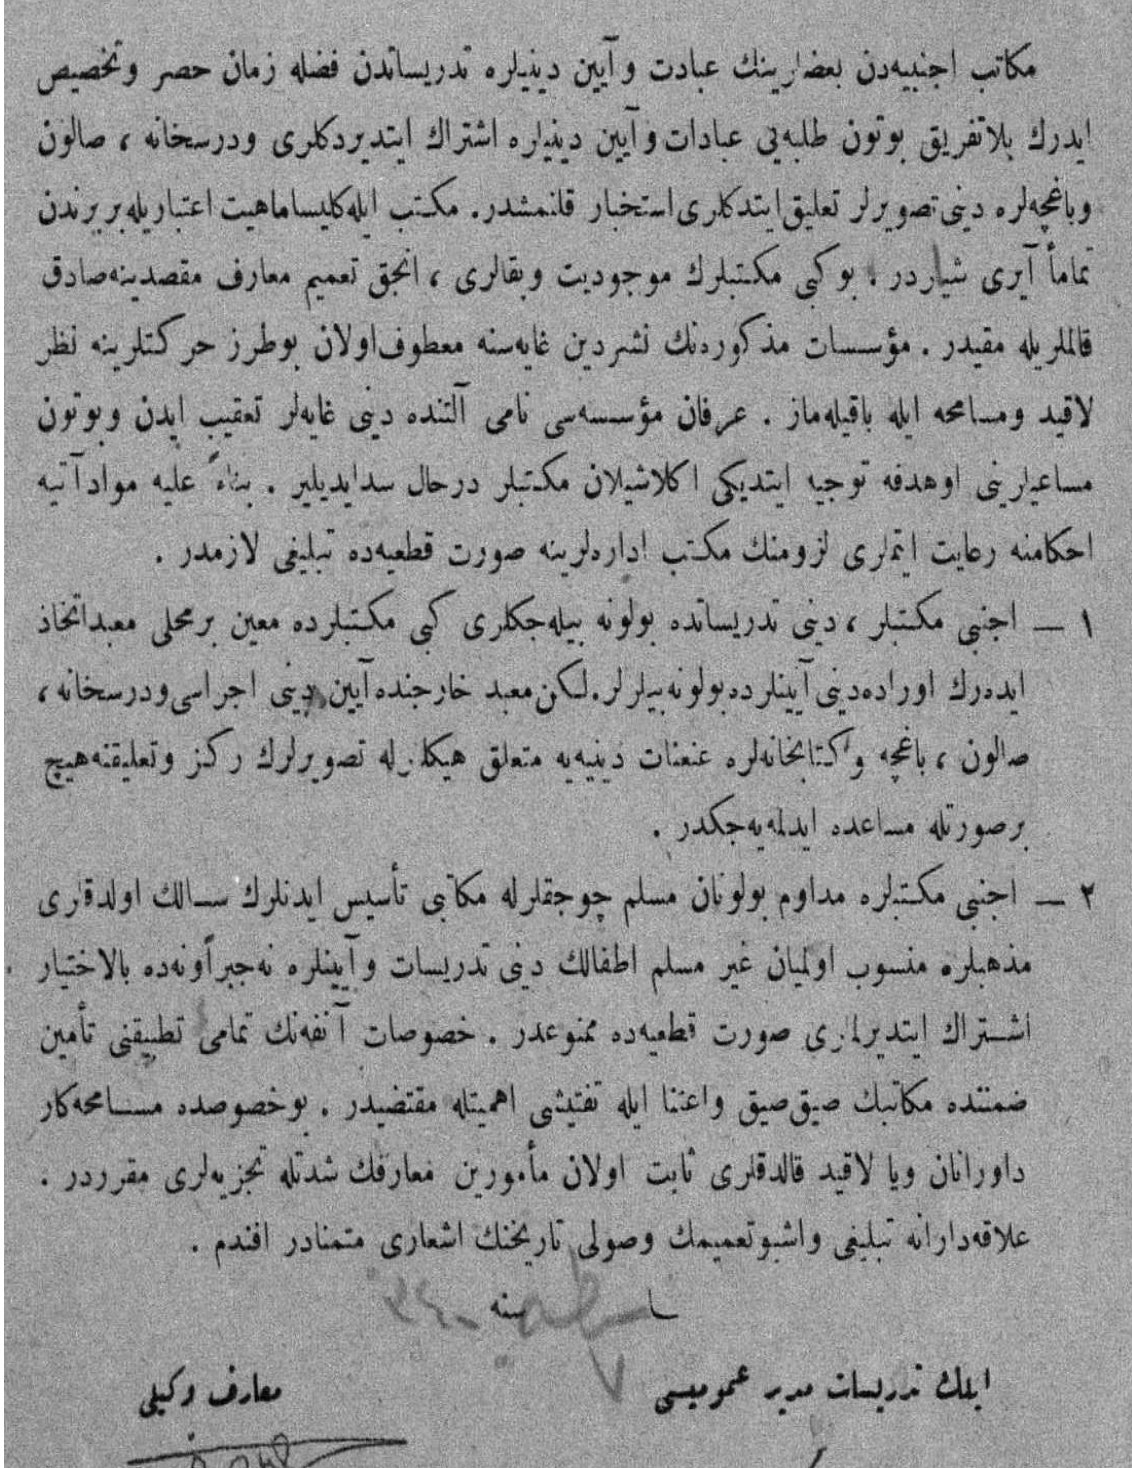 مكاتب اجنبیه‌دن بعضلرینك عبادت و آیین دینیلره تدریساتدن فضله زمان حصر و تخصیص
ایدرك بلاتفریق بوتون طلبه‌یی عبادات و آیین دینیلره اشتراك ایتدیردكلری ودرسخانه ، صالون
وباغچه‌لره دینی تصویرلر تعلیق ایتدكلری استخبار قلنمشدر . مكتب ایله كلیسا ماهیت اعتباریله بربرندن
تماماً آیری شیلردر . بو كبی مكتبلرك موجودیت وبقالری ، انجق تعمیم معارف مقصدینه صادق
قالملریله مقیدر . مؤسسات مذكوره‌نك نشردین غایه‌سنه معطوف اولان بوطرز حركتلرینه نظر
لاقید ومسامحه ایله باقیله‌ماز . عرفان مؤسسه‌سی نامی آلتنده دینی غایه‌لر تعقیب ایدن وبوتون
مساعیلرینی اوهدفه توجیه ایتدیكی اكلاشیلان مكتبلر درحال سدایدیلیر . بناءً علیه مواد آتیه
احكامنه رعایت ایتملری لزومنك مكتب اداره‌لرینه صورت قطعیه‌ده تبلیغی لازمدر .
١ — اجنبی مكتبلر ، دینی تدریساتده بولونه بیله‌جكلری كبی مكتبلرده معین برمحلی معبداتخاذ
ایده‌رك اوراده‌دینی آیینلرده بولونه‌بیلرلر . لكن معبد خارجنده آیین دینی اجراسی ودرسخانه ،
صالون ، باغچه و كتابخانه‌لره عنعنات دینیه‌یه متعلق هیكللرله تصویرلرك ركز وتعلیقنه هیچ
برصورتله مساعده ایدلمه‌یه‌جكدر .
٢ — اجنبی مكتبلره مداوم بولونان مسلم چوجقلرله مكاتبی تأسیس ایدنلرك سالك اولدقلری
مذهبلره منسوب اولمیان غیر مسلم اطفالك دینی تدریسات و آیینلره نه‌جبراً ونه‌ده بالاختیار
اشتراك ایتدیرلملری صورت قطعیه‌ده ممنوعدر . خصوصات آنفه‌نك تمامی تطبیقنی تأمین
ضمننده مكاتبك صیق صیق واعتنا ایله تفتیشی اهمیتله مقتضیدر . بوخصوصده مسامحه‌كار
داورانان ویا لاقید قالدقلری ثابت اولان مأمورین معارفك شدتله تجزیه‌لری مقرردر .
علاقه‌دارانه تبلیغی واشبوتعمیمك وصولی تاریخنك اشعاری متمنادر افندم .
سنه
ایلك تدریسات مدیر عمومیسی
معارف وكیلی